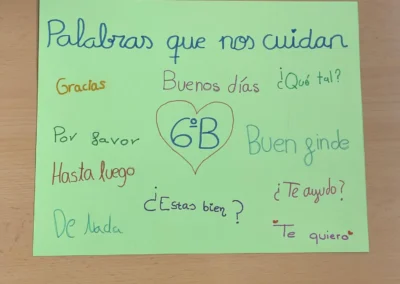 Palabras que nos cuidan
Gracias
Buenos días
¿Qué tal?
Por favor
6ºB
Buen finde
Hasta luego
¿Estas bien?
¿Te ayudo?
De Nada
Te quiero